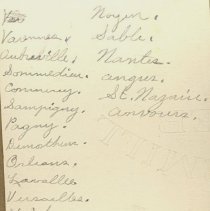 Varennes.
Aubreville.
Sommedieu.
Commercy.
Sampigny.
Pagny.
Demothen
Orleans.
Lavallie
Versailles.
Noyen.
Sable.
Nantes.
angers.
St. Nazaire.